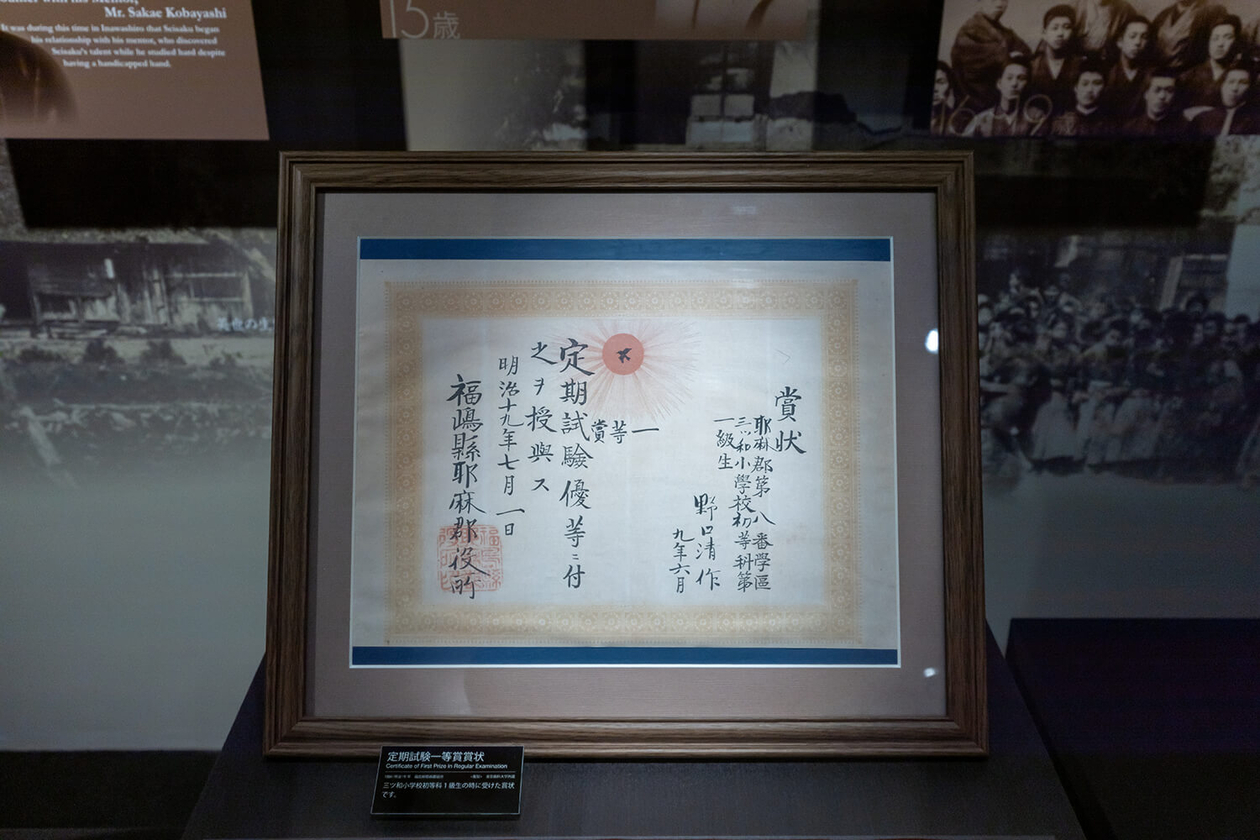 Mr. Sakae Kobayashi
It was during this time in Inawashiro that Seisaku began
his relationship with his mentor, who discovered
Seisaku's talent while he studied hard despite
having a handicapped hand.
15歳
19歳
賞状
耶麻郡第八番學區
三ツ和小學校初等科第
一級生
野口清作
九年六月
一等賞
定期試驗優等ニ付
之ヲ授與ス
明治十九年七月一日
福嶋縣耶麻郡役所
定期試験一等賞賞状
Certificate of First Prize in Regular Examination
三ツ和小学校初等科1級生の時に受けた賞状
です。